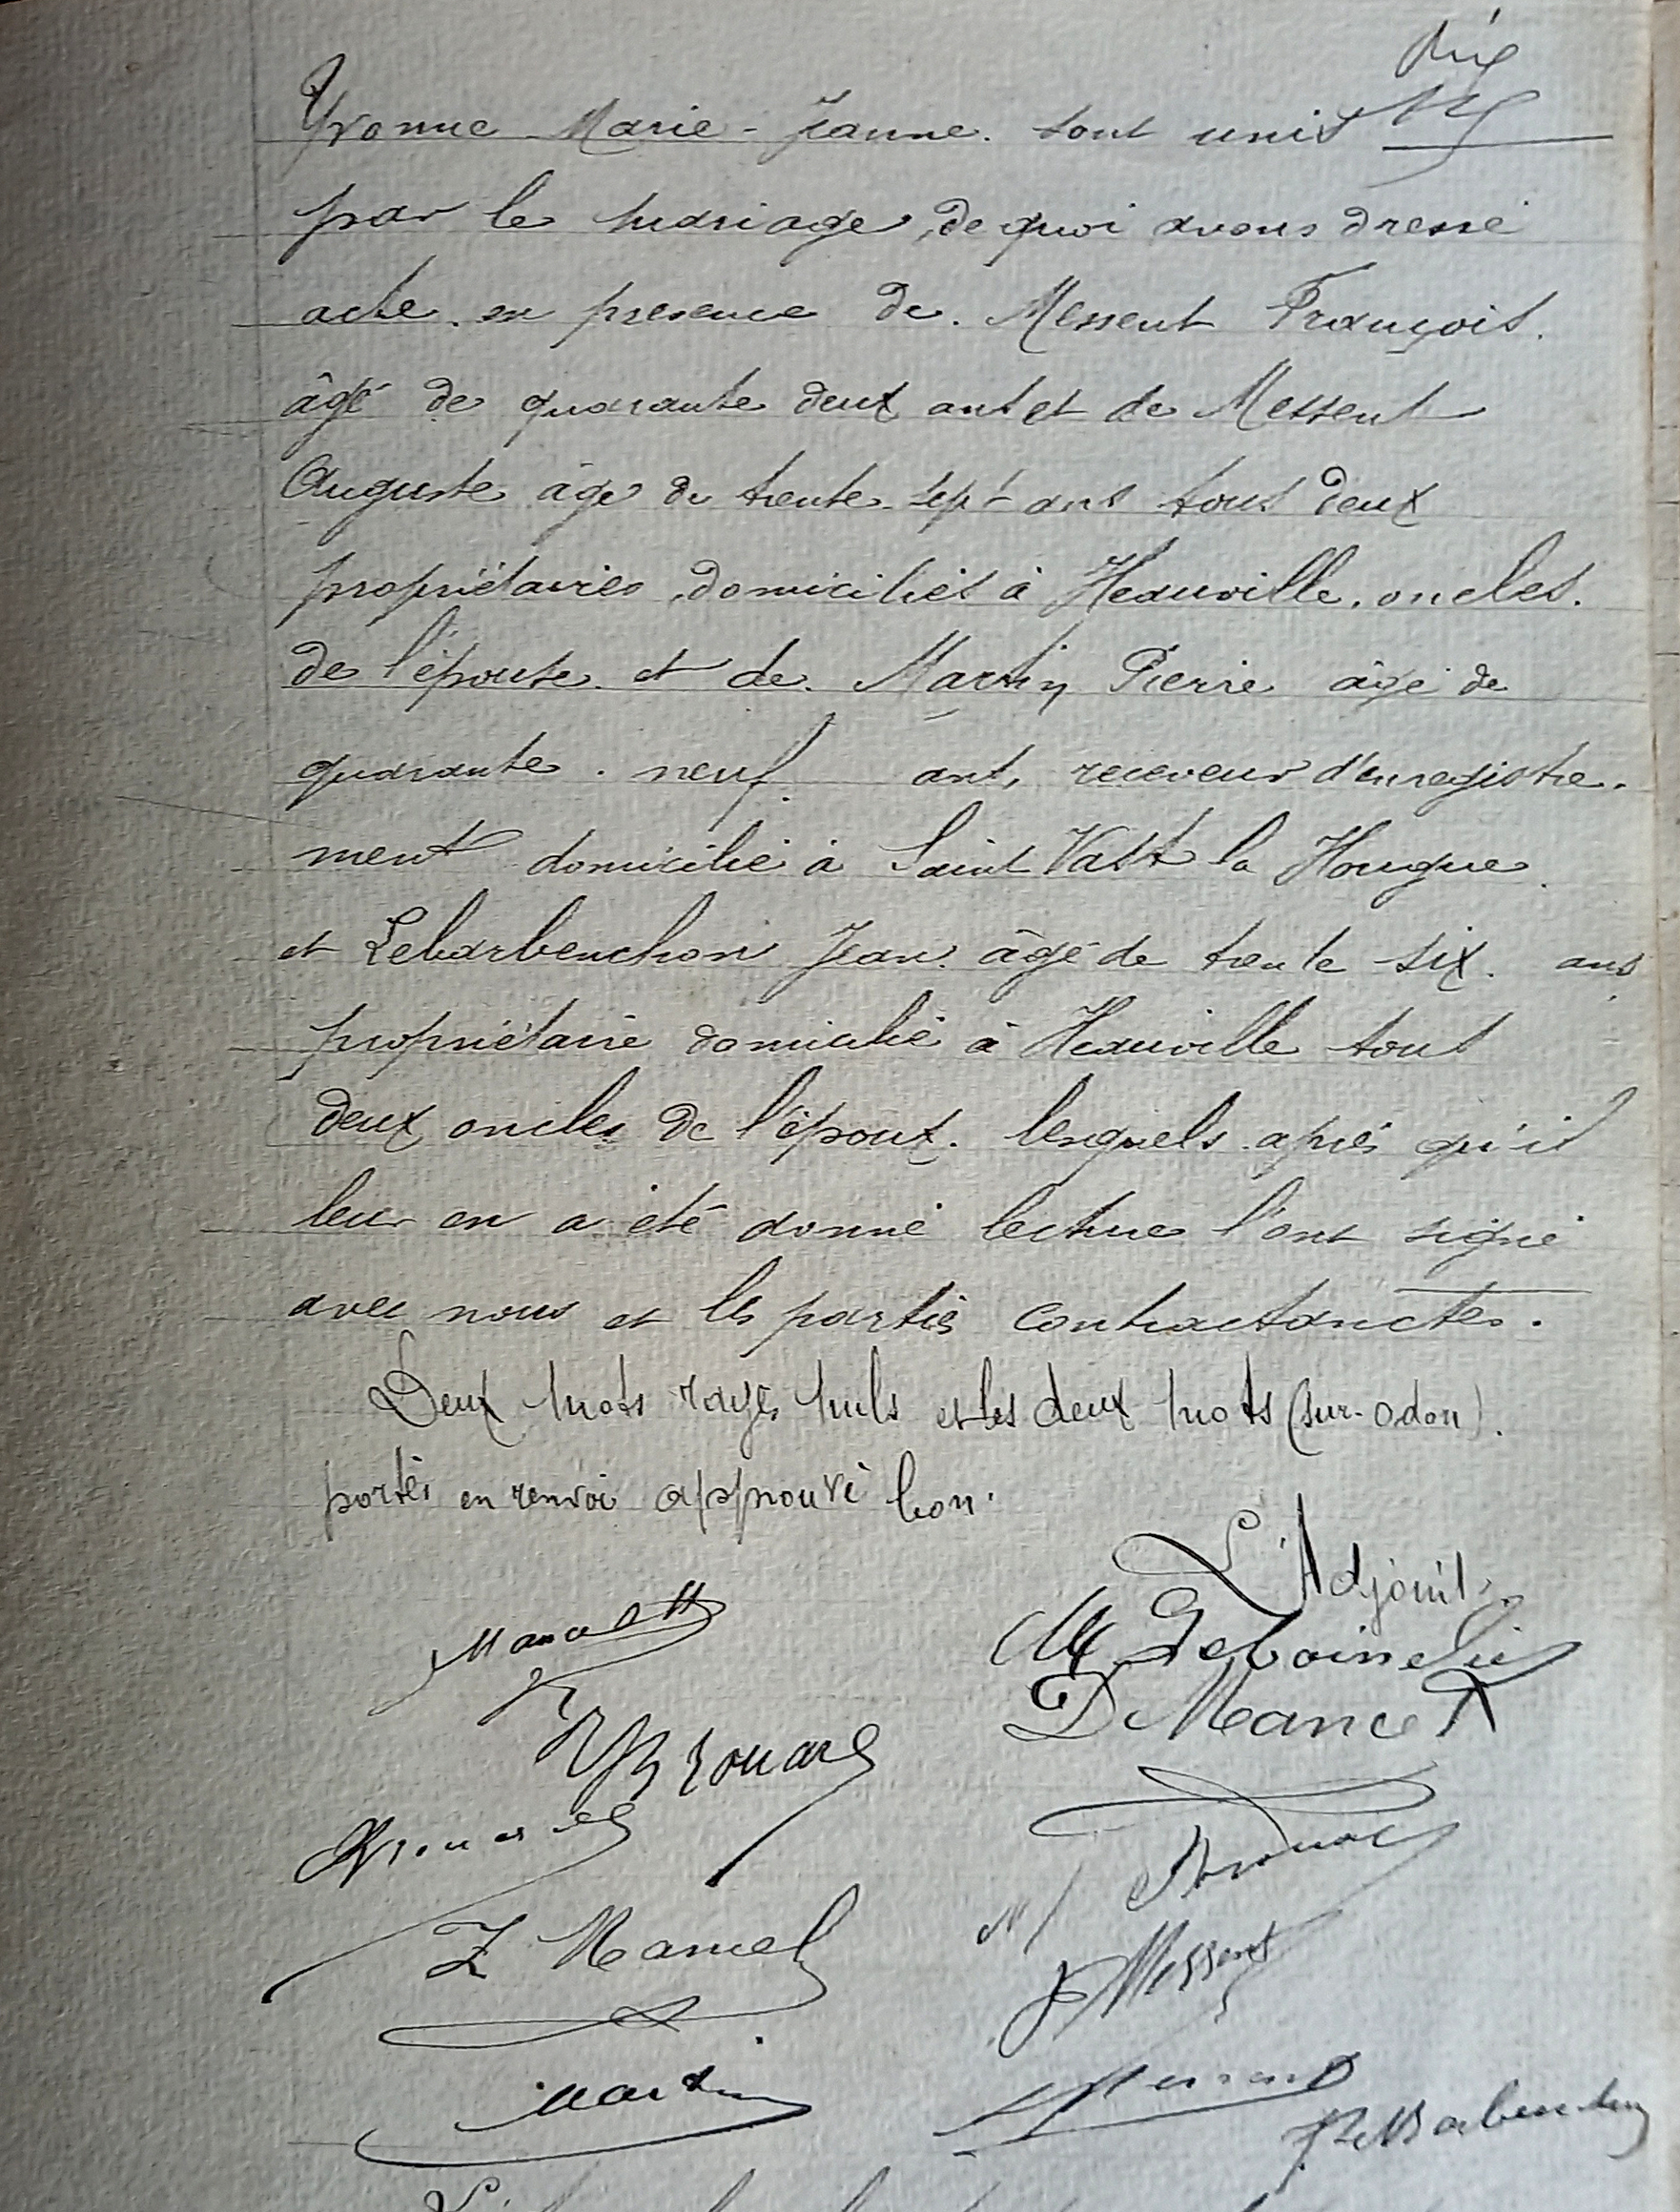 dix
Yvonne Marie-Jeanne. sont unis
par le mariage, de quoi avons dressé
acte. en presence de. Messent François.
âgé de quarante deux ans et de Messent
Auguste âgé de trente-sept ans tous deux
propriétaires, domiciliés à Héauville. oncles.
de l'épouse. et de. Martin Pierre âgé de
quarante. neuf. ans, receveur d'enregistre-
ment domicilié à Saint Vast la Hougue.
et Lebarbenchon Jean. âgé de trente-six. ans
propriétaire domicilié à Héauville tous
deux oncles de l'époux. lesquels après qu'il
leur en a été donné lecture l'ont signé
avec nous et les parties contractanctes.
Deux mots rayés nuls et les deux mots (sur-Odon).
portés en renvoi approuvé bon.
L'Adjoint.
D Mancel
Brouard
Z Mancel
Messent
Martin